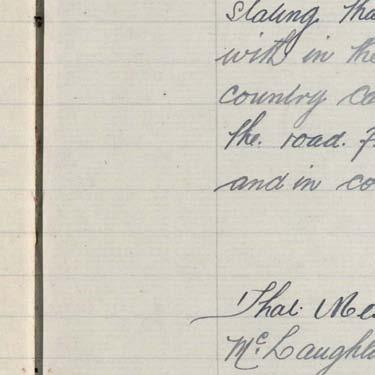 stating tha
with in the
country Co
the. road.
and in co
That Me
McLaughl